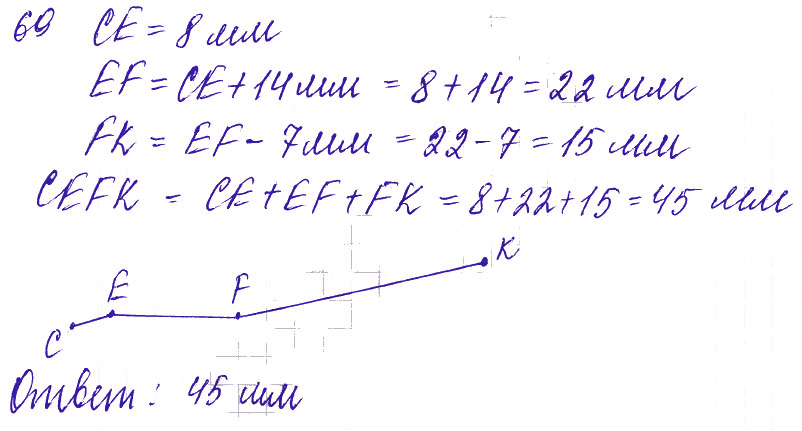 69 CE = 8 мм
EF = CE + 14 мм = 8 + 14 = 22 мм
FK = EF - 7 мм = 22 - 7 = 15 мм
CEFK = CE + EF + FK = 8 + 22 + 15 = 45 мм
K
E F
C
Ответ: 45 мм